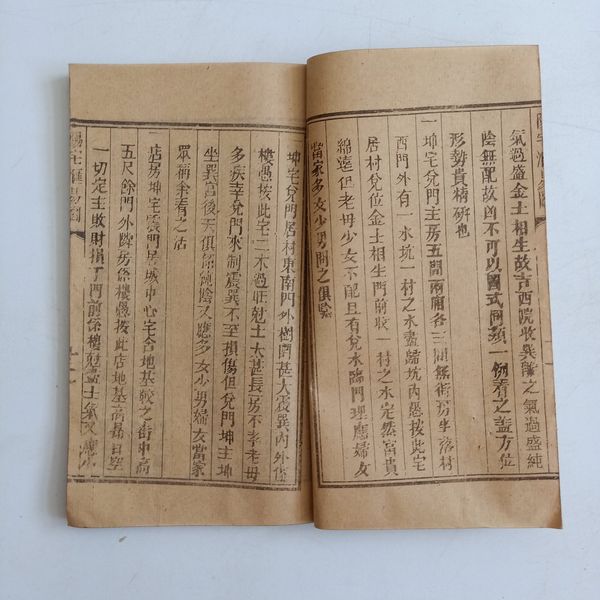 氣過盛金土相生故吉西院收巽離之氣過盛純
陰無配故凶不可以圖式同類一例看之蓋方位
形勢貴精研也
一坤宅兌門主房五間兩廂各三間無街房坐落村
西門外有一水坑一村之水盡歸坑內愚按此宅
居村兌位金土相生門前收一村之水定然富貴
綿遠但老母少女不配且有兌水臨門理應婦女
當家多女少男問之俱驗
坤宅兌門居村東南門外樹園甚大震巽內外俱
樓愚按此宅二木過旺剋土太甚長房不孝老母
多疾幸兌門來制震巽不至損傷但兌門坤主坤
坐巽宮後天俱係純陰又應多女少男婦女當家
眾稱余看之活
一店房坤宅震門居城中心宅舍地基較之街中高
五尺餘門外隣房係樓愚按此店地基高昂日空
一切定主敗財損丁門前係樓剋土氣又應